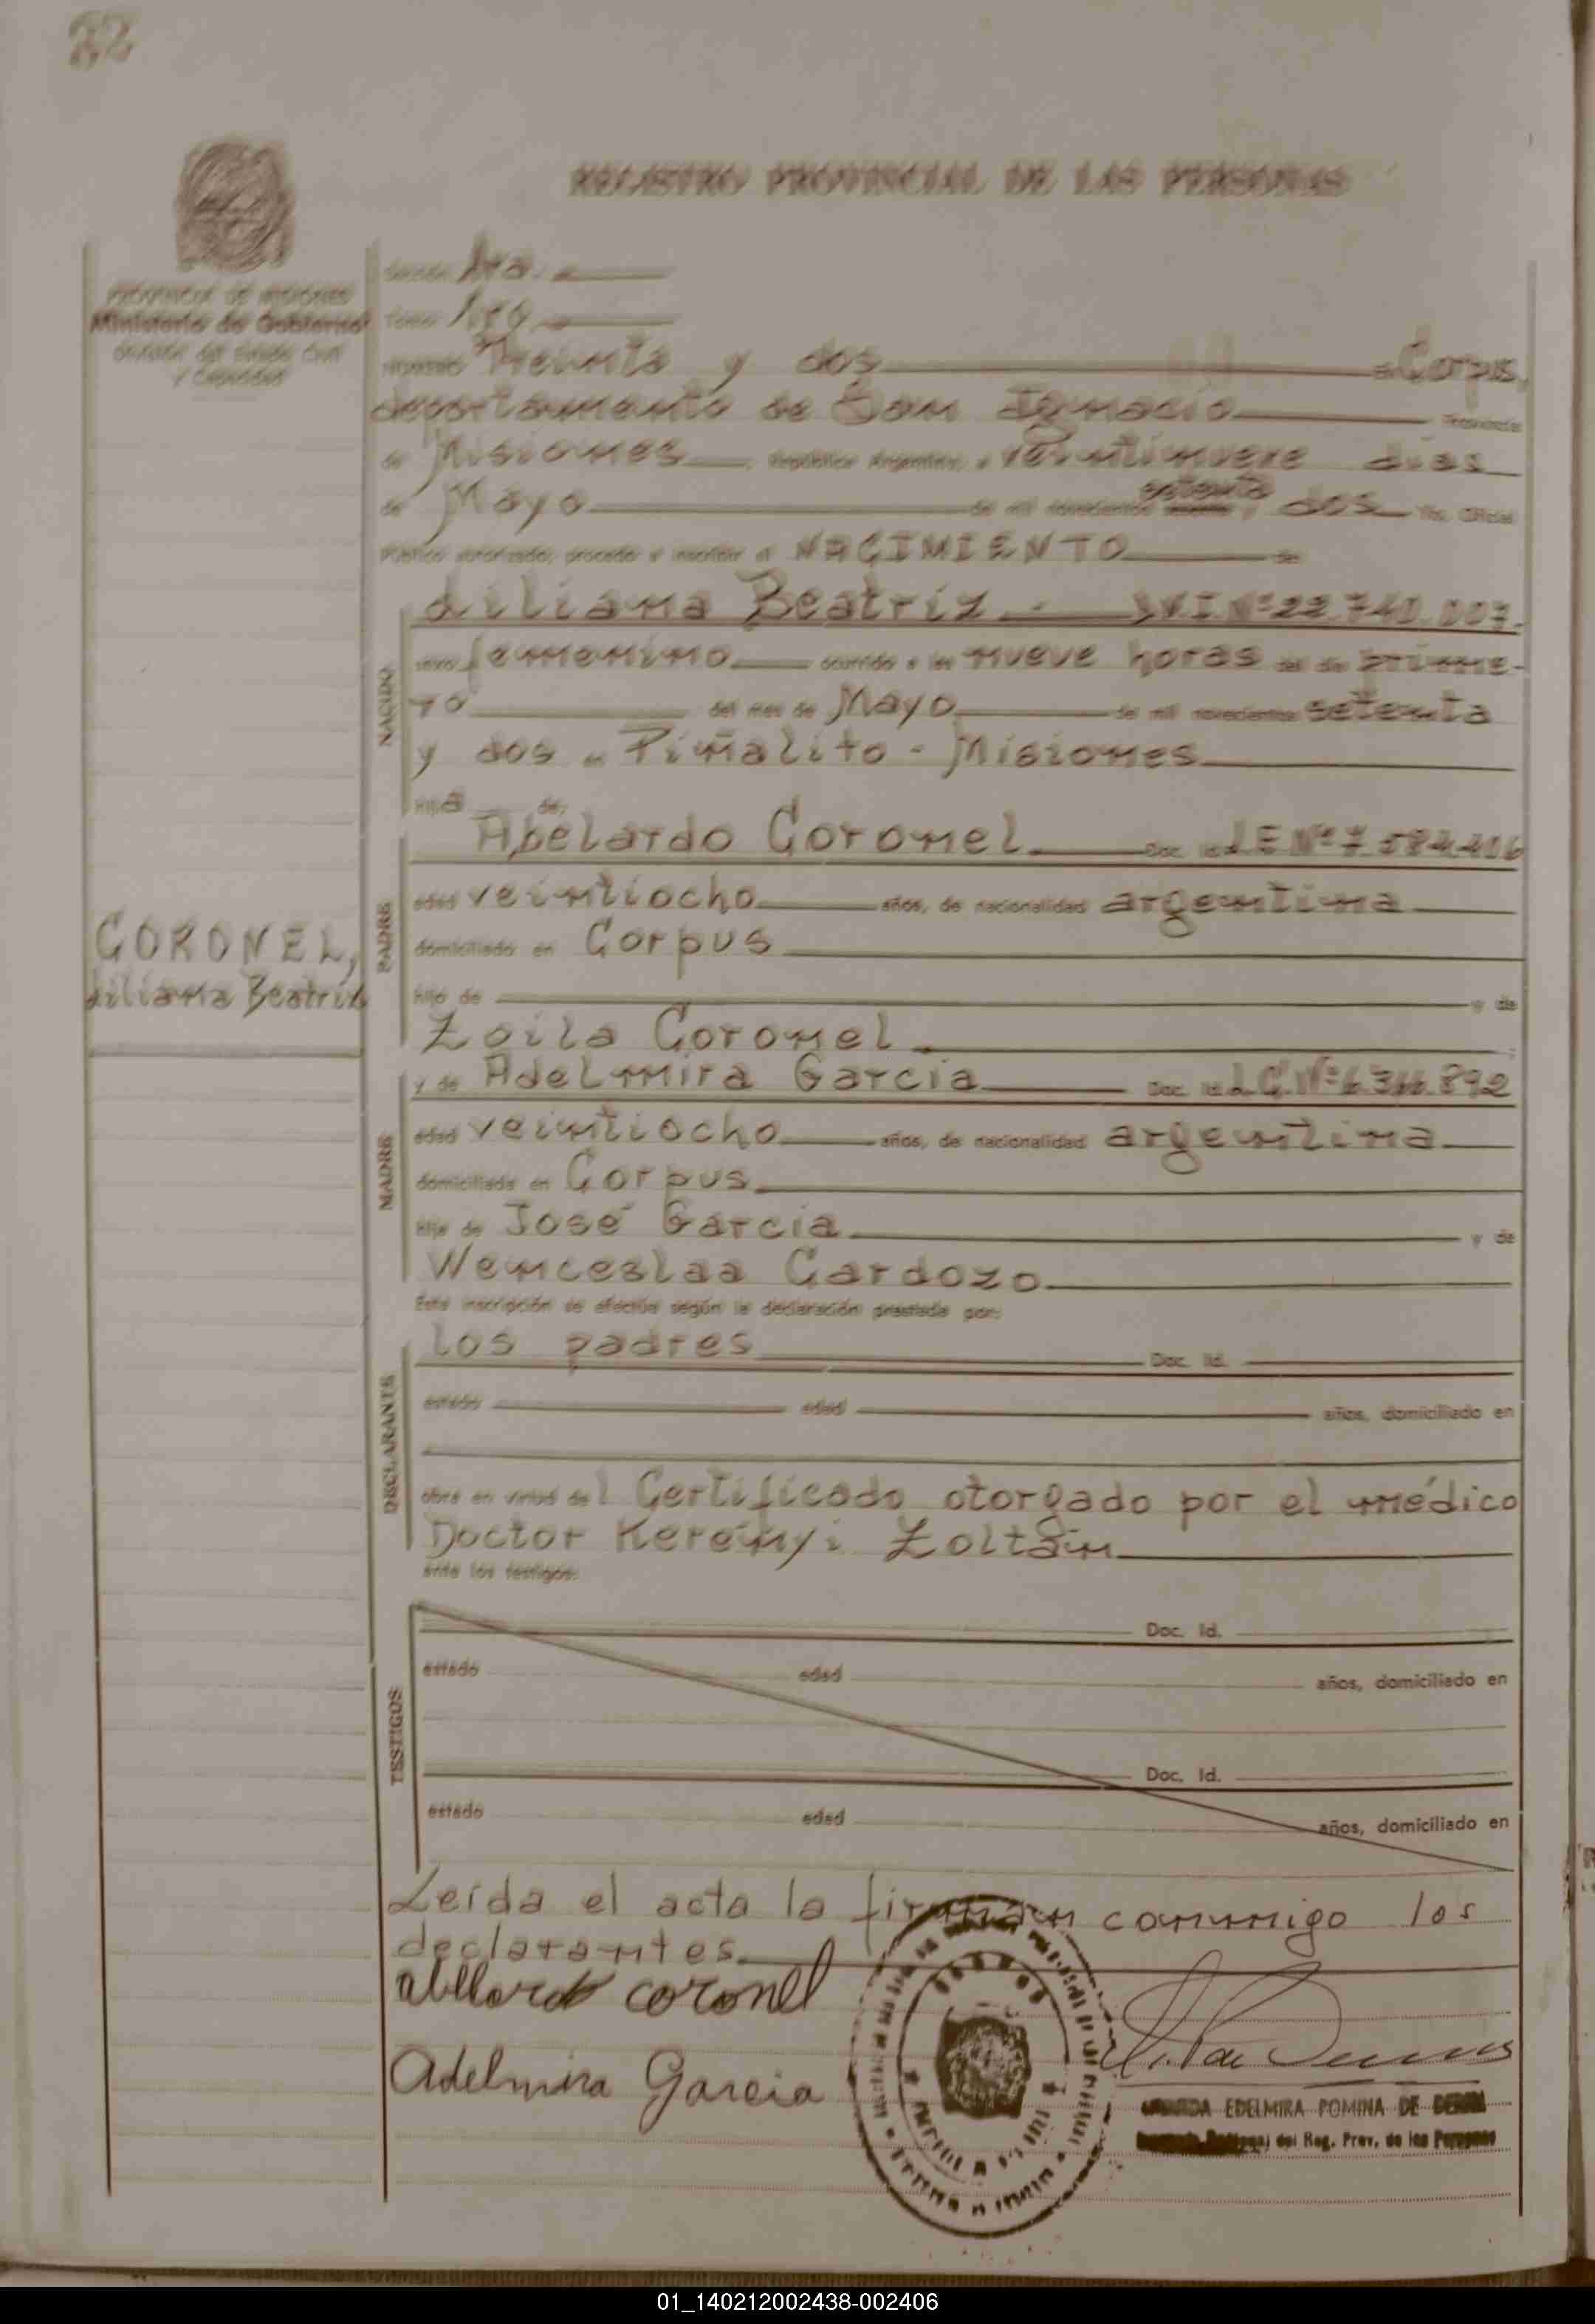 REGISTRO PROVINCIAL DE LAS PERSONAS
PROVINCIA DE MISIONES
Ministerio de Gobierno
División del Estado Civil
y Capacidad
1ra.
Tomo 1ro
NUMERO Treinta y dos en Corpus,
departamento de San Ignacio Provincia
de Misiones, República Argentina, a veintinueve dias
de Mayo de mil novecientos setenta y dos Yo, Oficial
Público autorizado, procedo a inscribir el NACIMIENTO de
Liliana Beatriz D.N.I Nº 22.740.007.
sexo femenino ocurrido a las nueve horas del día prime-
ro del mes de Mayo de mil novecientos setenta
y dos en Piñalito - Misiones
hija de:
NACIDO
Abelardo Coronel Doc. Id. L E Nº 7.584.416
edad veintiocho años, de nacionalidad argentina
domiciliado en Corpus
hijo de y de
Zoila Coronel
PADRE
CORONEL,
Liliana Beatriz
y de Adelmira Garcia Doc. Id. L C. Nº 6.366.892
edad veintiocho años, de nacionalidad argentina
domiciliada en Corpus
hija de José Garcia y de
Wenceslaa Cardozo
MADRE
Esta inscripción se efectúa según la declaración prestada por:
los padres Doc. Id.
estado edad años, domiciliado en
obra en virtud del Certificado otorgado por el médico
Doctor Kerényi Zoltán
DECLARANTE
ante los testigos:
Doc. Id.
estado edad años, domiciliado en
Doc. Id.
estado edad años, domiciliado en
TESTIGOS
Leída el acta la firman conmigo los
declarantes
abelardo coronel
Adelmira Garcia
EDELMIRA POMINA DE
del Reg. Prov. de las Personas
01_140212002438-002406